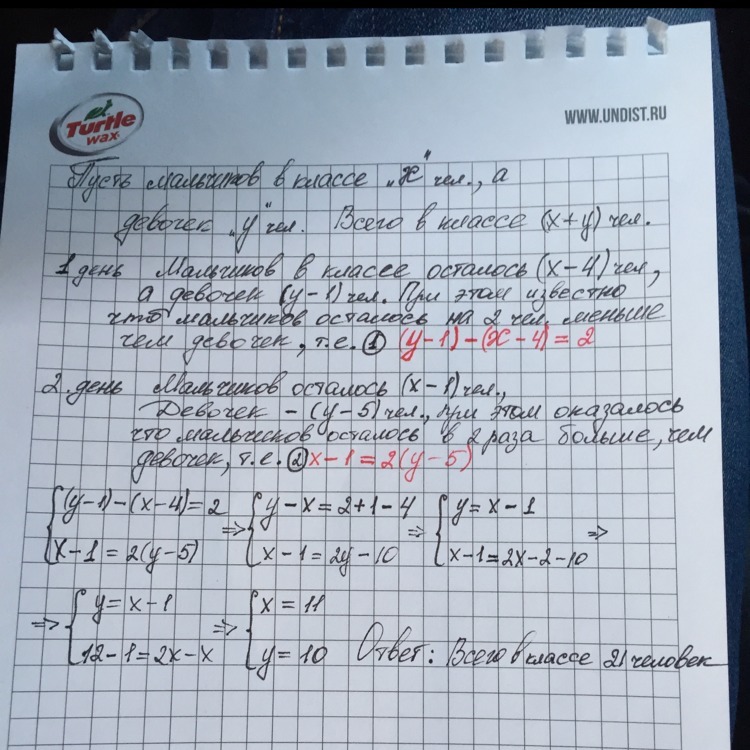 Turtle
wax
WWW.UNDIST.RU
Пусть мальчиков в классе „x" чел., а
девочек „y" чел. Всего в классе (x+y) чел.
1 день Мальчиков в классе осталось (x-4) чел,
а девочек (y-1) чел. При этом известно
что мальчиков осталось на 2 чел. меньше
чем девочек, т.е. ① (y-1)-(x-4)=2
2 день Мальчиков осталось (x-1) чел.,
Девочек - (y-5) чел., при этом оказалось
что мальчиков осталось в 2 раза больше, чем
девочек, т.е. ② x-1=2(y-5)
{(y-1)-(x-4)=2 => {y-x=2+1-4 => {y=x-1 =>
x-1=2(y-5) x-1=2y-10 x-1=2x-2-10
=> {y=x-1 => {x=11
12-1=2x-x y=10 Ответ: Всего в классе 21 человек